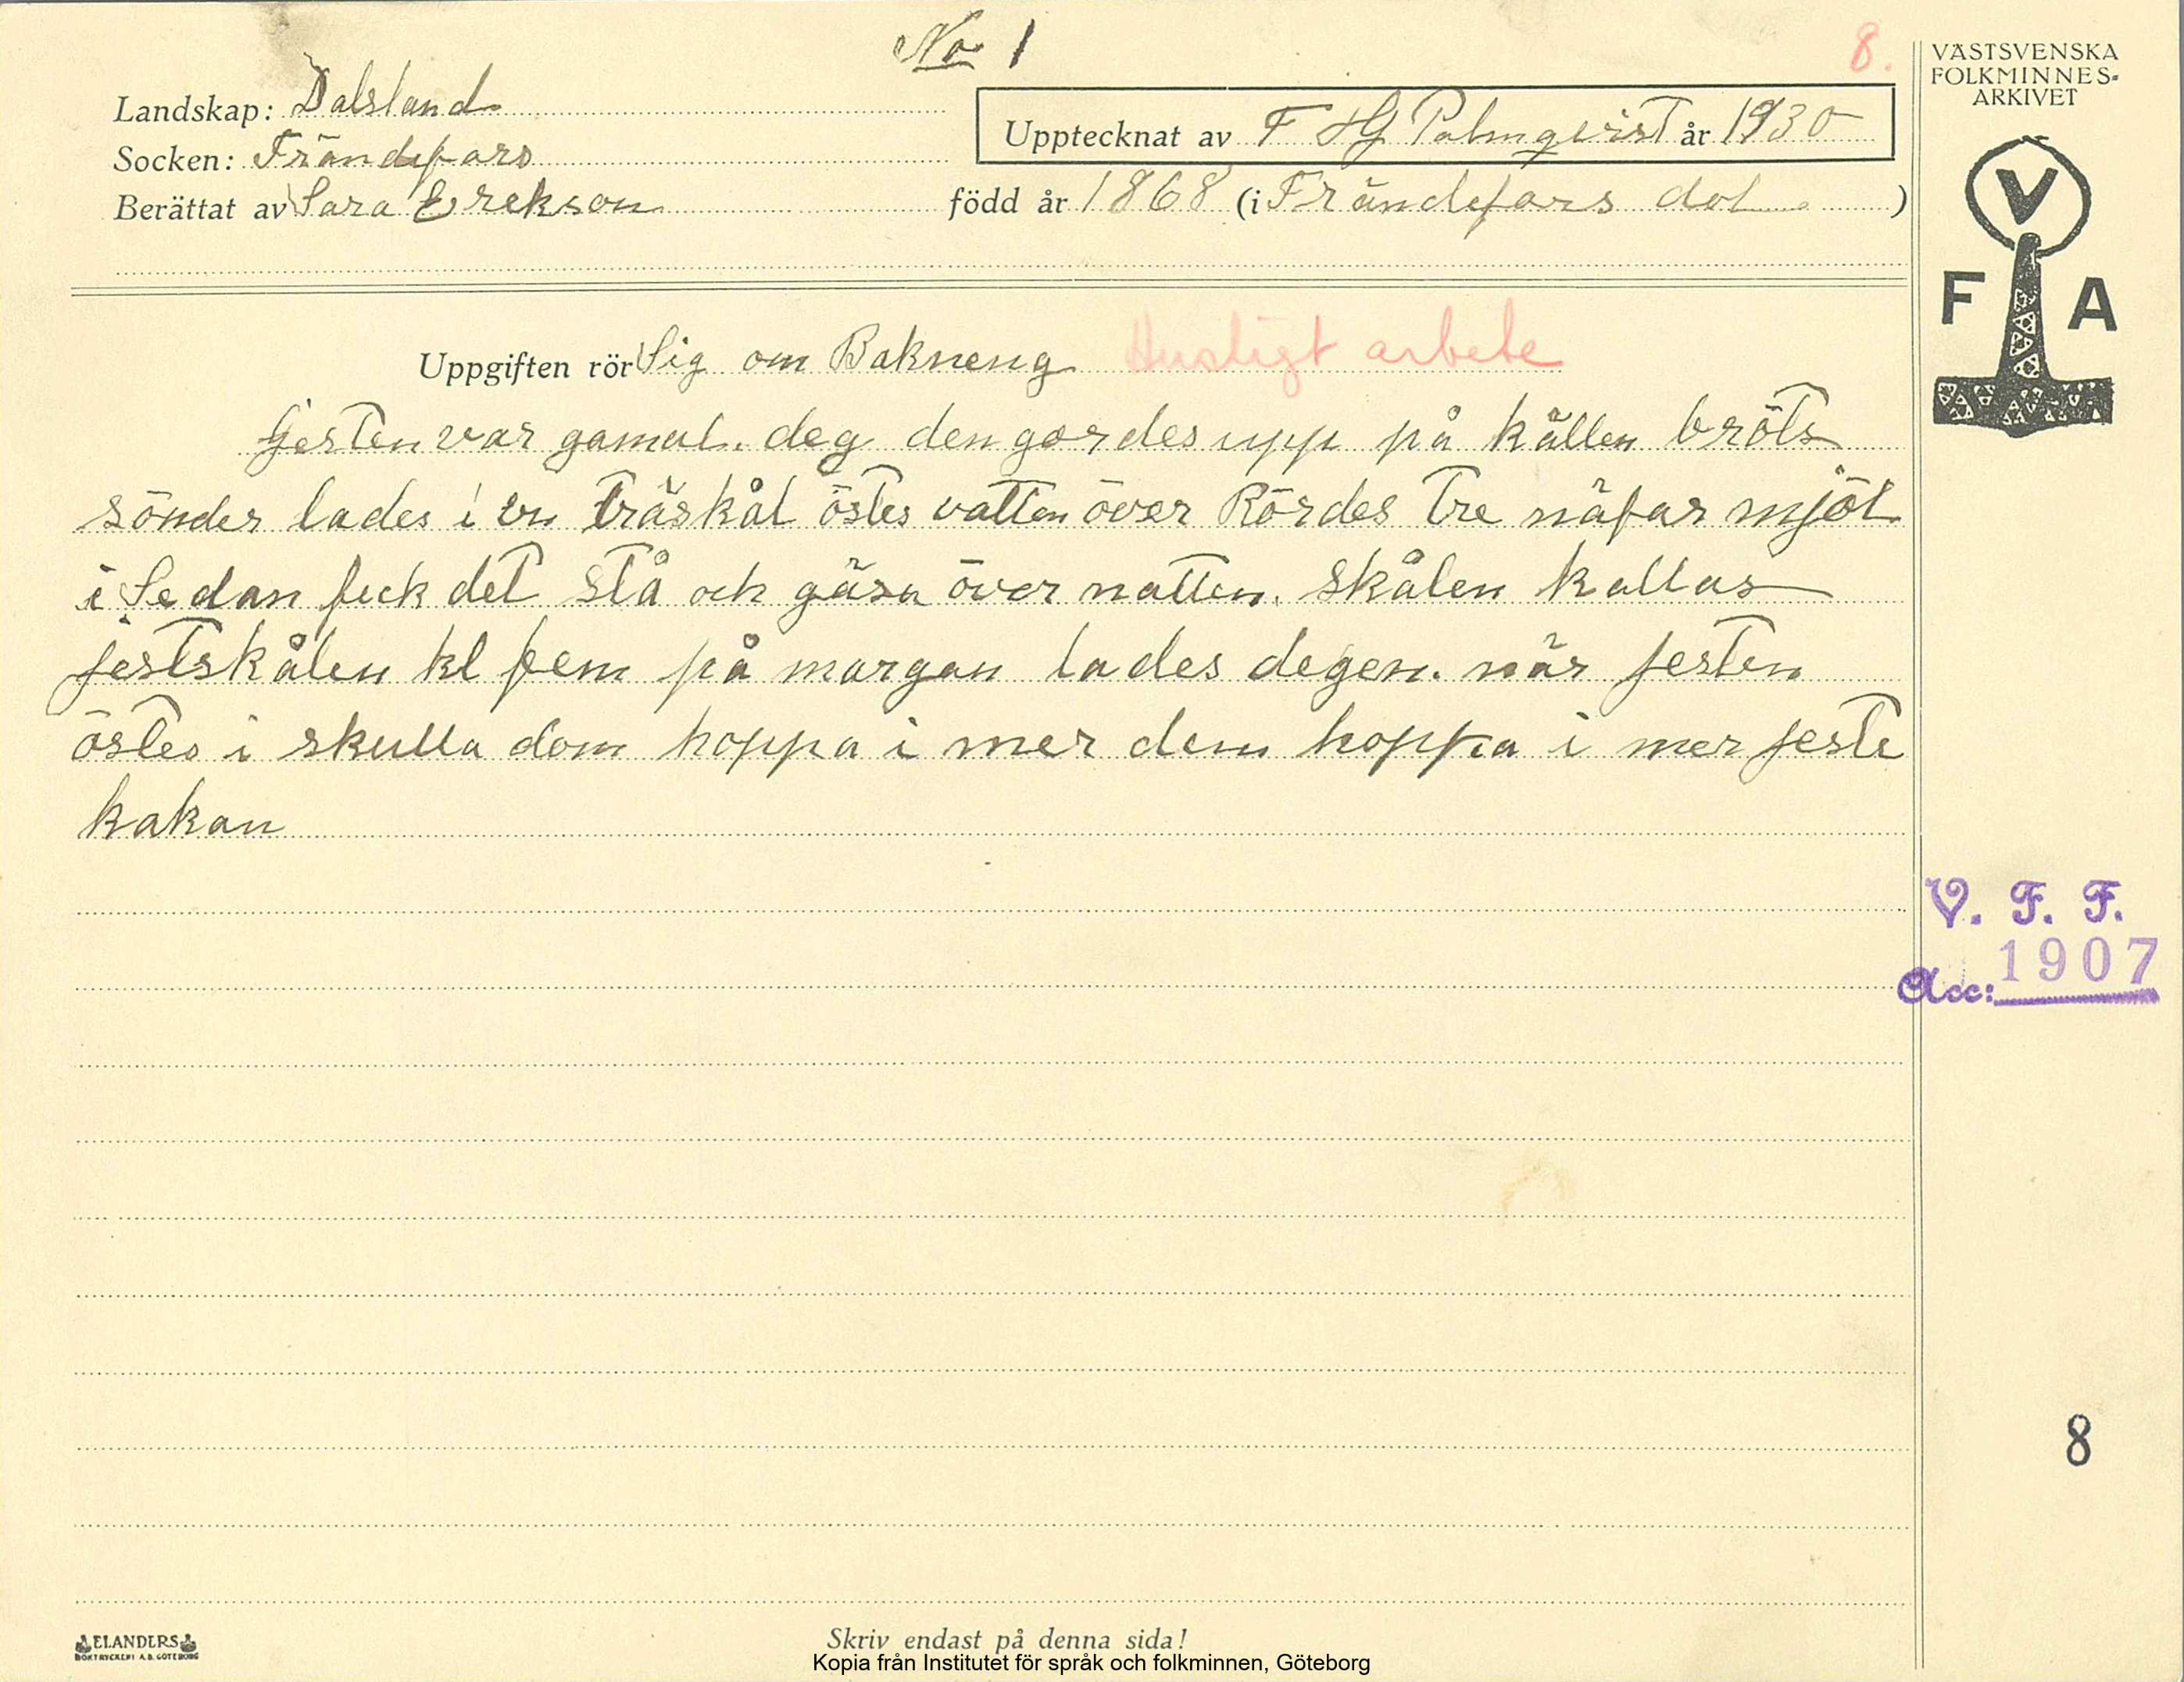 No 1
8.
Landskap: Dalsland
Upptecknat av F HG Palmqvist år 1930
Socken: Frändefors
Berättat av Sara Erekson född år 1868 (i Frändefors dal )
VÄSTSVENSKA
FOLKMINNES-
ARKIVET
V
F A
Uppgiften rör Sig om Bakneng Husligt arbete
Gesten var gamal. deg den gordes upp på källen bröts
sönder lades i en träskål östes vatten över Rördes tre näfar mjöl
i Sedan feck det stå och gäsa över natten. Skålen kallas
jestskålen kl fem på margan lades degen. när jesten
östes i skulla dom hoppa i mer dem hoppa i mer jeste
kakan
V. F. F.
Acc: 1907
8
ELANDERS
BOKTRYCKERI A.B. GÖTEBORG
Skriv endast på denna sida!
Kopia från Institutet för språk och folkminnen, Göteborg